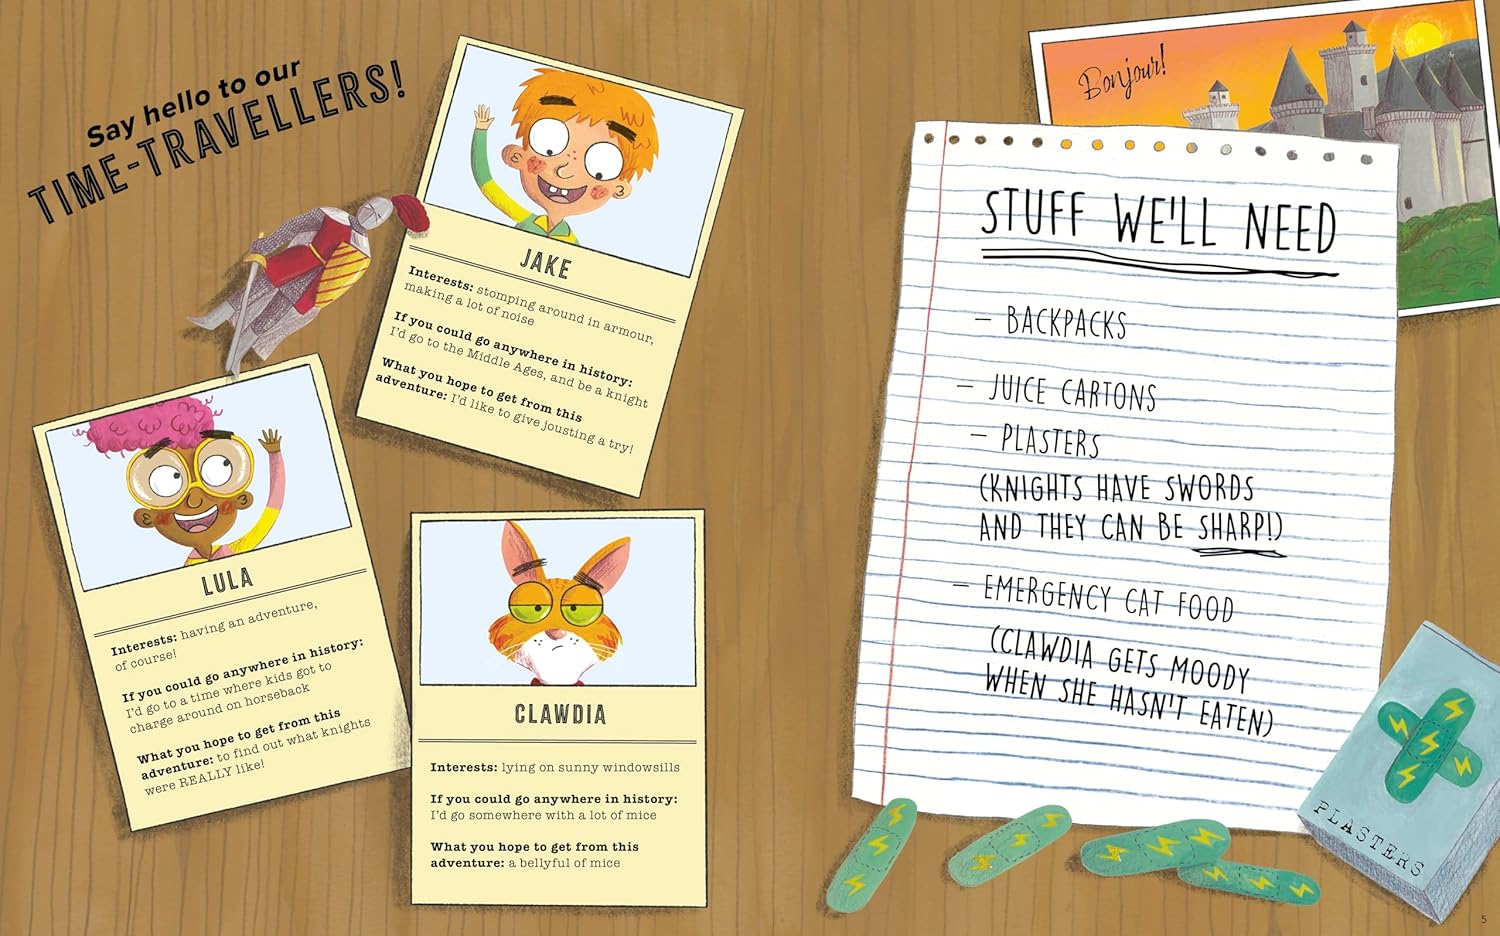 Say hello to our
TIME-TRAVELLERS!
JAKE
Interests: stomping around in armour,
making a lot of noise
If you could go anywhere in history:
I'd go to the Middle Ages, and be a knight
What you hope to get from this
adventure: I'd like to give jousting a try!
LULA
Interests: having an adventure,
of course!
If you could go anywhere in history:
I'd go to a time where kids got to
charge around on horseback
What you hope to get from this
adventure: to find out what knights
were REALLY like!
CLAWDIA
Interests: lying on sunny windowsills
If you could go anywhere in history:
I'd go somewhere with a lot of mice
What you hope to get from this
adventure: a bellyful of mice
Bonjour!
STUFF WE'LL NEED
– BACKPACKS
– JUICE CARTONS
– PLASTERS
(KNIGHTS HAVE SWORDS
AND THEY CAN BE SHARP!)
– EMERGENCY CAT FOOD
(CLAWDIA GETS MOODY
WHEN SHE HASN'T EATEN)
PLASTERS
5